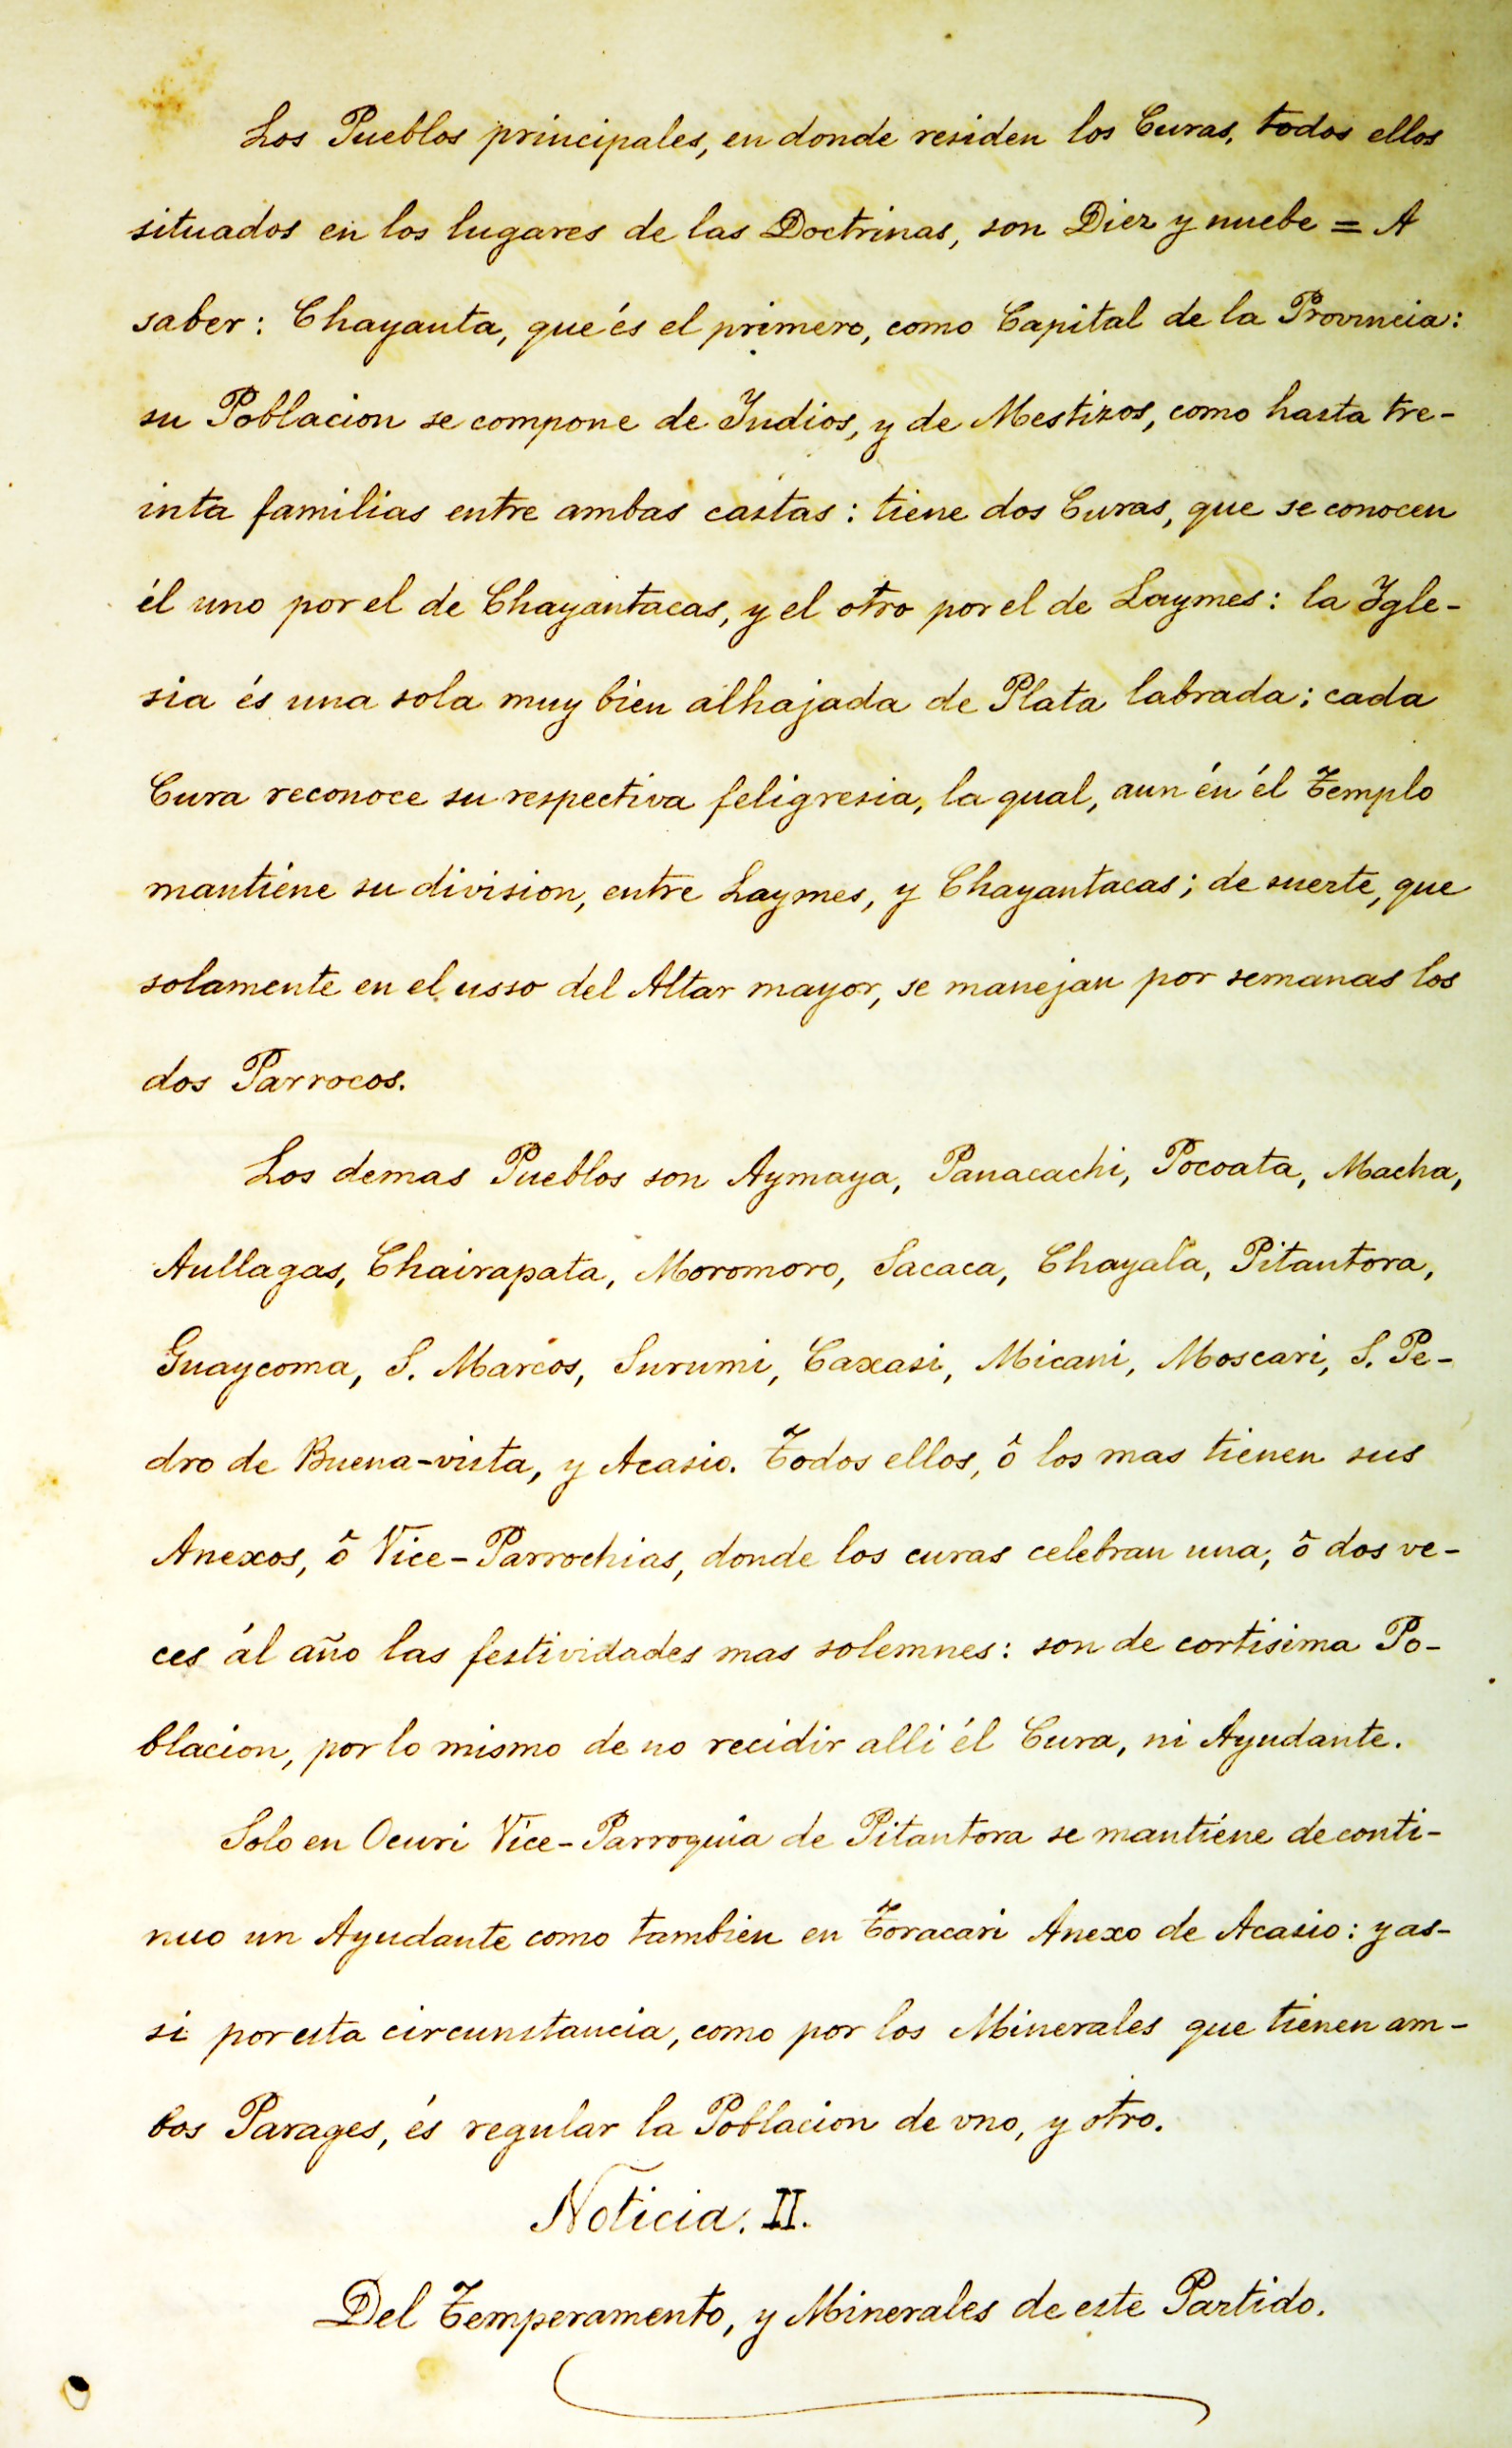 Los Pueblos principales, en donde residen los Curas, todos ellos
situados en los lugares de las Doctrinas, son Diez y nuebe = A
saber: Chayanta, que és el primero, como Capital de la Provincia:
su Poblacion se compone de Yndios, y de Mestizos, como hasta tre-
inta familias entre ambas castas: tiene dos Curas, que se conocen
él uno por el de Chayantacas, y el otro por el de Laymes: la Ygle-
sia és una sola muy bien alhajada de Plata labrada; cada
Cura reconoce su respectiva feligresia, la qual, aun én él Templo
mantiene su division, entre Laymes, y Chayantacas; de suerte, que
solamente en el usso del Altar mayor, se manejan por semanas los
dos Parrocos.
Los demas Pueblos son Aymaya, Panacachi, Pocoata, Macha,
Aullagas, Chairapata, Moromoro, Sacaca, Chayala, Pitantora,
Guaycoma, S. Marcos, Surumi, Caxasi, Micani, Moscari, S. Pe-
dro de Buena-vista, y Acasio. Todos ellos, ô los mas tienen sus
Anexos, ô Vice-Parrochias, donde los curas celebran una, ô dos ve-
ces ál año las festividades mas solemnes: son de cortisima Po-
blacion, por lo mismo de no recidir alli él Cura, ni Ayudante.
Solo en Ocuri Vice-Parroquia de Pitantora se mantiéne de conti-
nuo un Ayudante como tambien en Toracari Anexo de Acasio: y as-
si por esta circunstancia, como por los Minerales que tienen am-
bos Parages, és regular la Poblacion de vno, y otro.
Noticia. II.
Del Temperamento, y Minerales de este Partido.